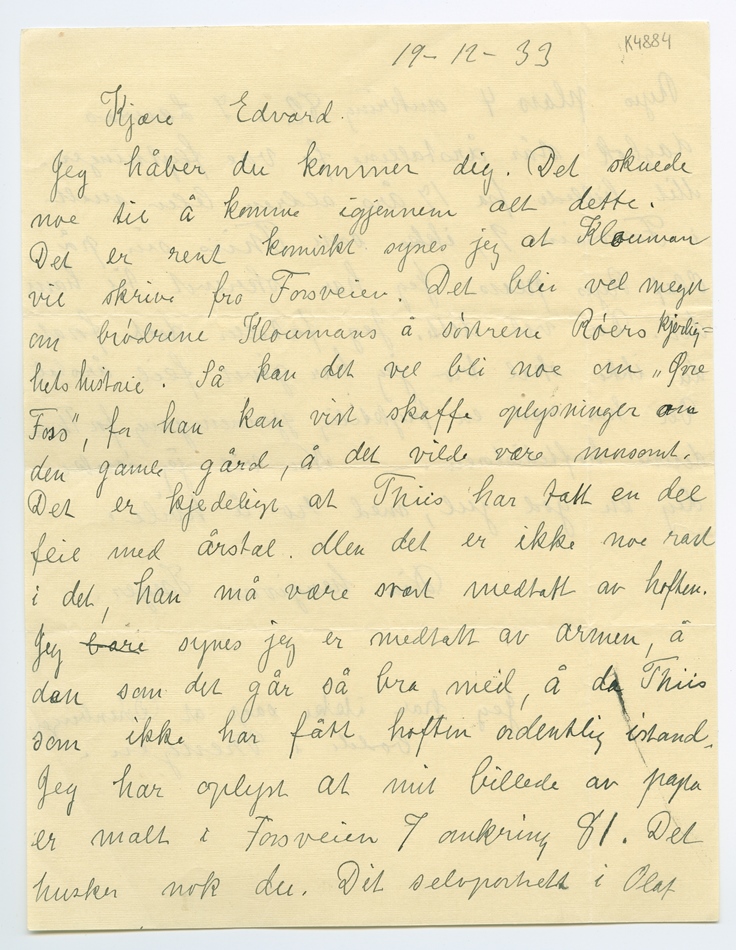 19-12-33
K4884
Kjære Edvard.
Jeg håber du kommer dig. Det skuede
noe til å komme igjennem alt dette.
Det er rent komiskt synes jeg at Klouman
vil skrive fra Fossveien. Det blir vel meget
om brødrene Kloumans å søstrene Røers kjerlig=
hets historie. Så kan det vel bli noe om „Øvre
Foss", for han kan vist skaffe oplysninger om
den gamle gård, å det vilde være morsomt.
Det er kjedeligt at Thiis har tatt en del
feil med årstal. Men det er ikke noe rart
i det, han må være svært medtatt av hoften.
Jeg bare synes jeg er medtatt av armen, å
den som det går så bra med, å da Thiis
som ikke har fått hoften ordentlig istand.
Jeg har oplyst at mit billede av papa
er malt i Fossveien 7 omkring 81. Det
husker nok du. Dit selvportrett i Olaf